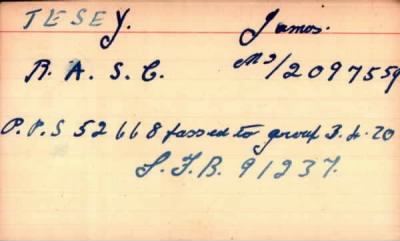 TESEY. James.
R. A. S. C. M2/2097559
P.P.S 52668 passed to group 3.4.20
S.F.B. 91237.